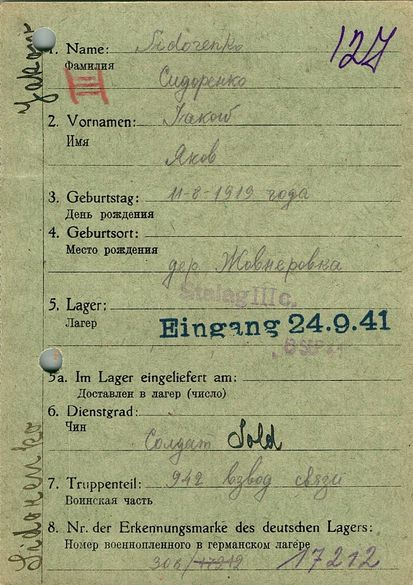 127
1. Name: Sidorenko
Фамилия
Сидоренко
III
2. Vornamen: Jakob
Имя
Яков
3. Geburtstag: 11-8-1919 года
День рождения
4. Geburtsort:
Место рождения
дер. Жовнеровка
5. Lager: Stalag III c.
Лагер
Eingang 24.9.41
5a. Im Lager eingeliefert am:
Доставлен в лагер (число)
6. Dienstgrad:
Чин
Солдат Sold
7. Truppenteil: 942 взвод связи
Воинская часть
8. Nr. der Erkennungsmarke des deutschen Lagers:
Номер военнопленного в германском лагере
306/17212 17212
Sidorenko
Jakow